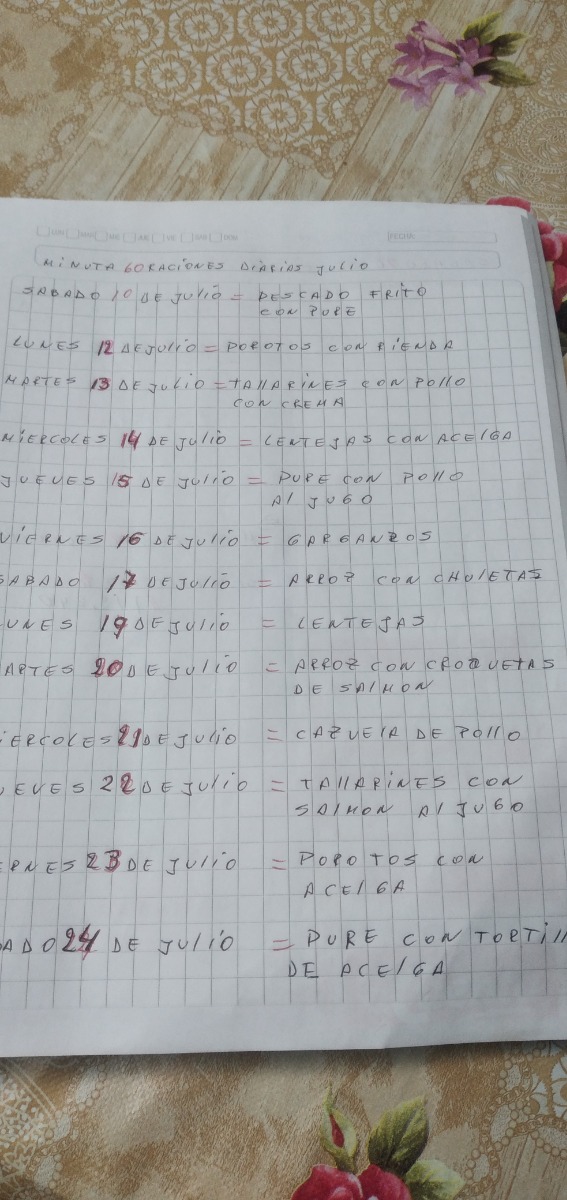 MINUTA 60 RACIONES DIARIAS JULIO
SABADO 10 DE JULIO = PESCADO FRITO
CON PURE
LUNES 12 DE JULIO = POROTOS CON RIENDA
MARTES 13 DE JULIO = TALLARINES CON POLLO
CON CREMA
MIERCOLES 14 DE JULIO = LENTEJAS CON ACELGA
JUEVES 15 DE JULIO = PURE CON POLLO
AL JUGO
VIERNES 16 DE JULIO = GARBANZOS
SABADO 17 DE JULIO = ARROZ CON CHULETAS
UNES 19 DE JULIO = LENTEJAS
ARTES 20 DE JULIO = ARROZ CON CROQUETAS
DE SALMON
IERCOLES 21 DE JULIO = CAZUELA DE POLLO
EVES 22 DE JULIO = TALLARINES CON
SALMON AL JUGO
ERNES 23 DE JULIO = POROTOS CON
ACELGA
ADO 24 DE JULIO = PURE CON TORTILL
DE ACELGA